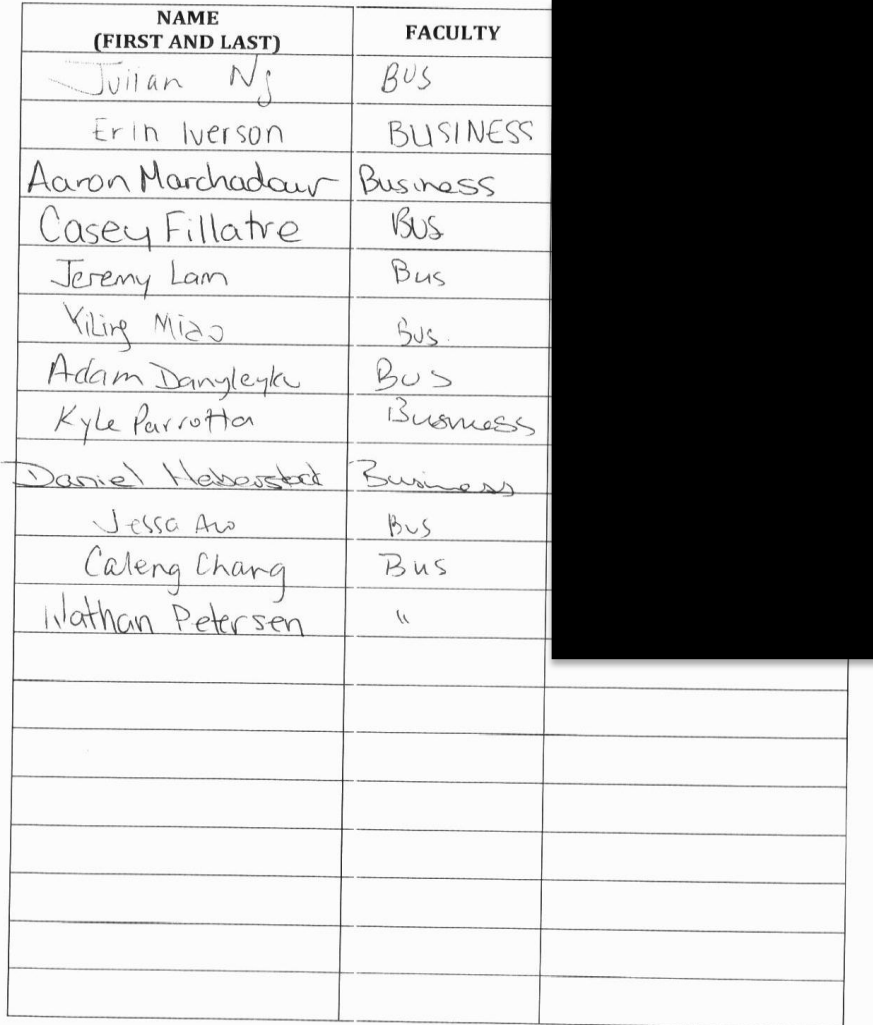 NAME FACULTY
(FIRST AND LAST)
Julian Ng BUS
Erin Iverson BUSINESS
Aaron Marchadour Business
Casey Fillatre BUS
Jeremy Lam Bus
Yiling Miao Bus.
Adam Danyleyko BUS
Kyle Parrotta Business
Daniel Business
Jessa Aw Bus
Caleng Chang Bus
Nathan Petersen "